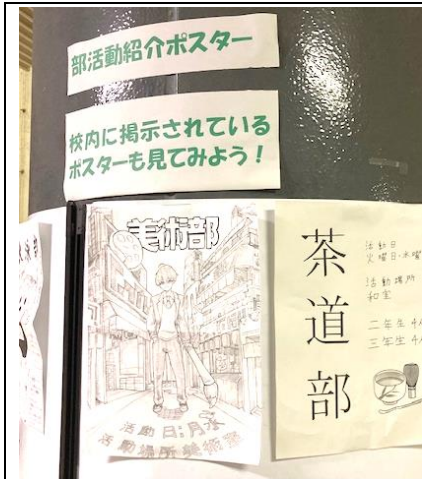 部活動紹介ポスター
校内に掲示されている
ポスターも見てみよう！
美術部
活動日:月水
活動場所美術室
茶道部
活動日
火曜日・水曜
活動場所
和室
二年生4人
三年生4人